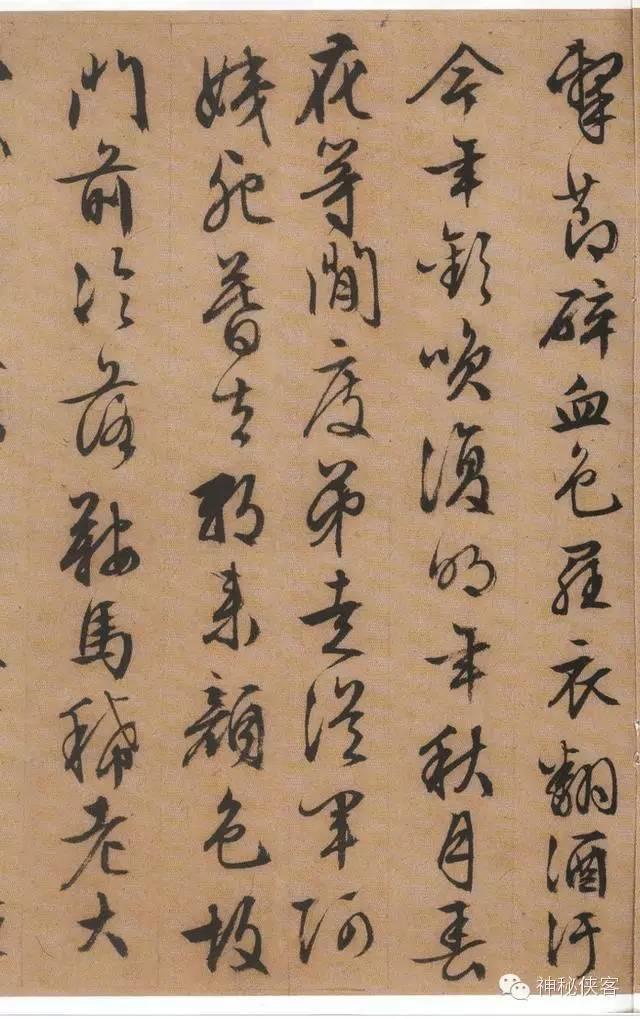 擊節碎血色羅衣翻酒汙
今年歡咲復明年秋月春
花等閒度弟走從軍阿
姨死暮去朝來顏色故
門前冷落鞍馬稀老大
神秘侠客